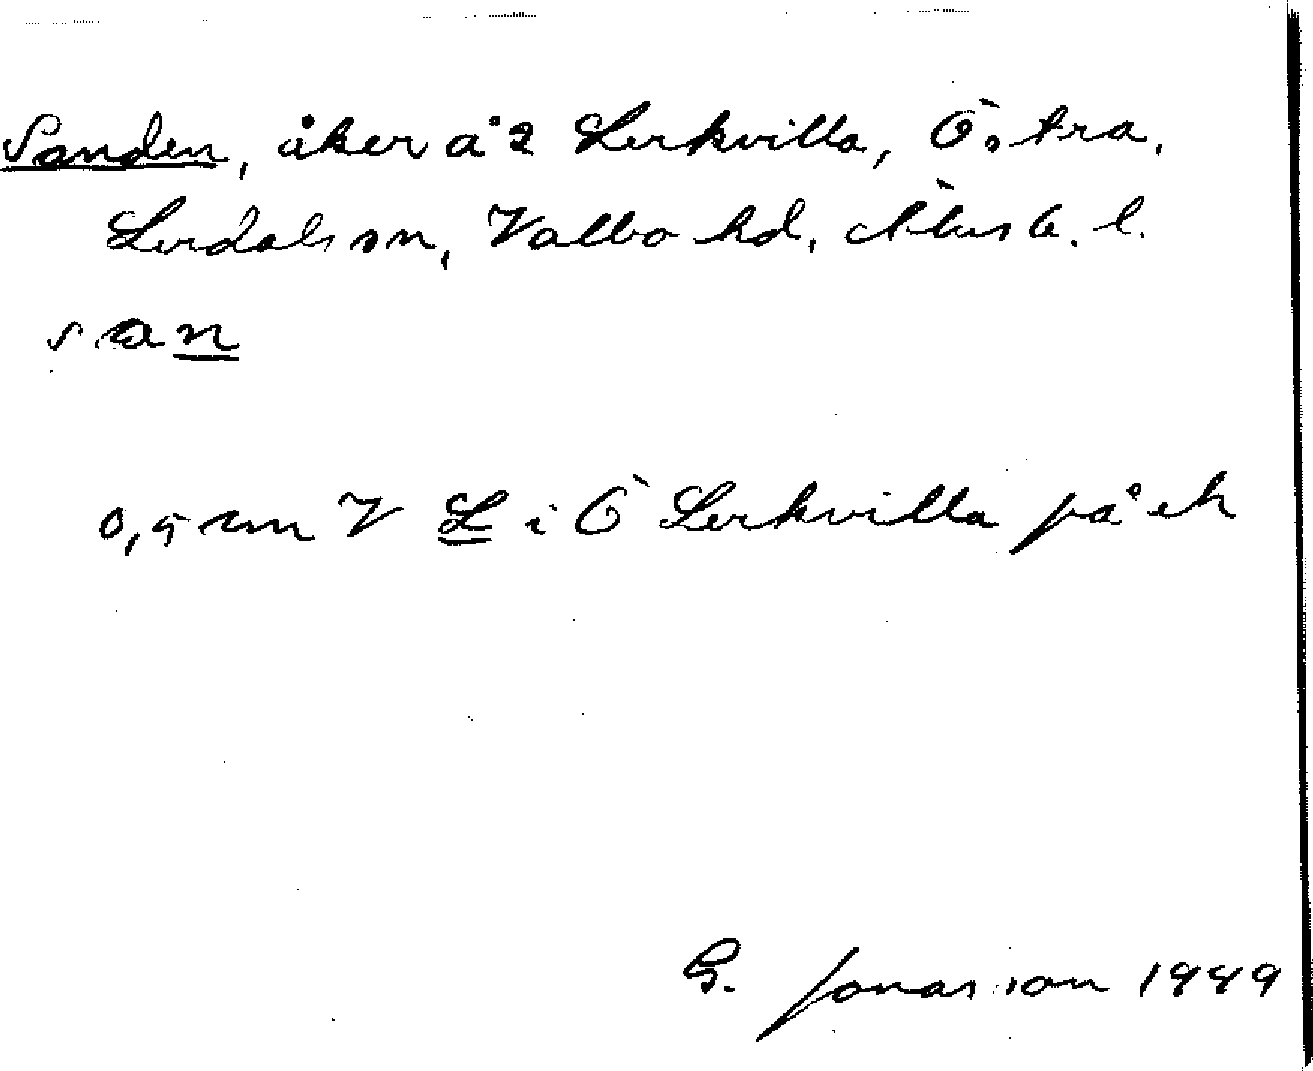 Sanden, åker å 2 Lerkvilla, Östra,
Lerdals sn, Valbo hd, Älvsb. l.
san
0,5 cm V L i Ö Lerkvilla på ek
G. Jonasson 1949